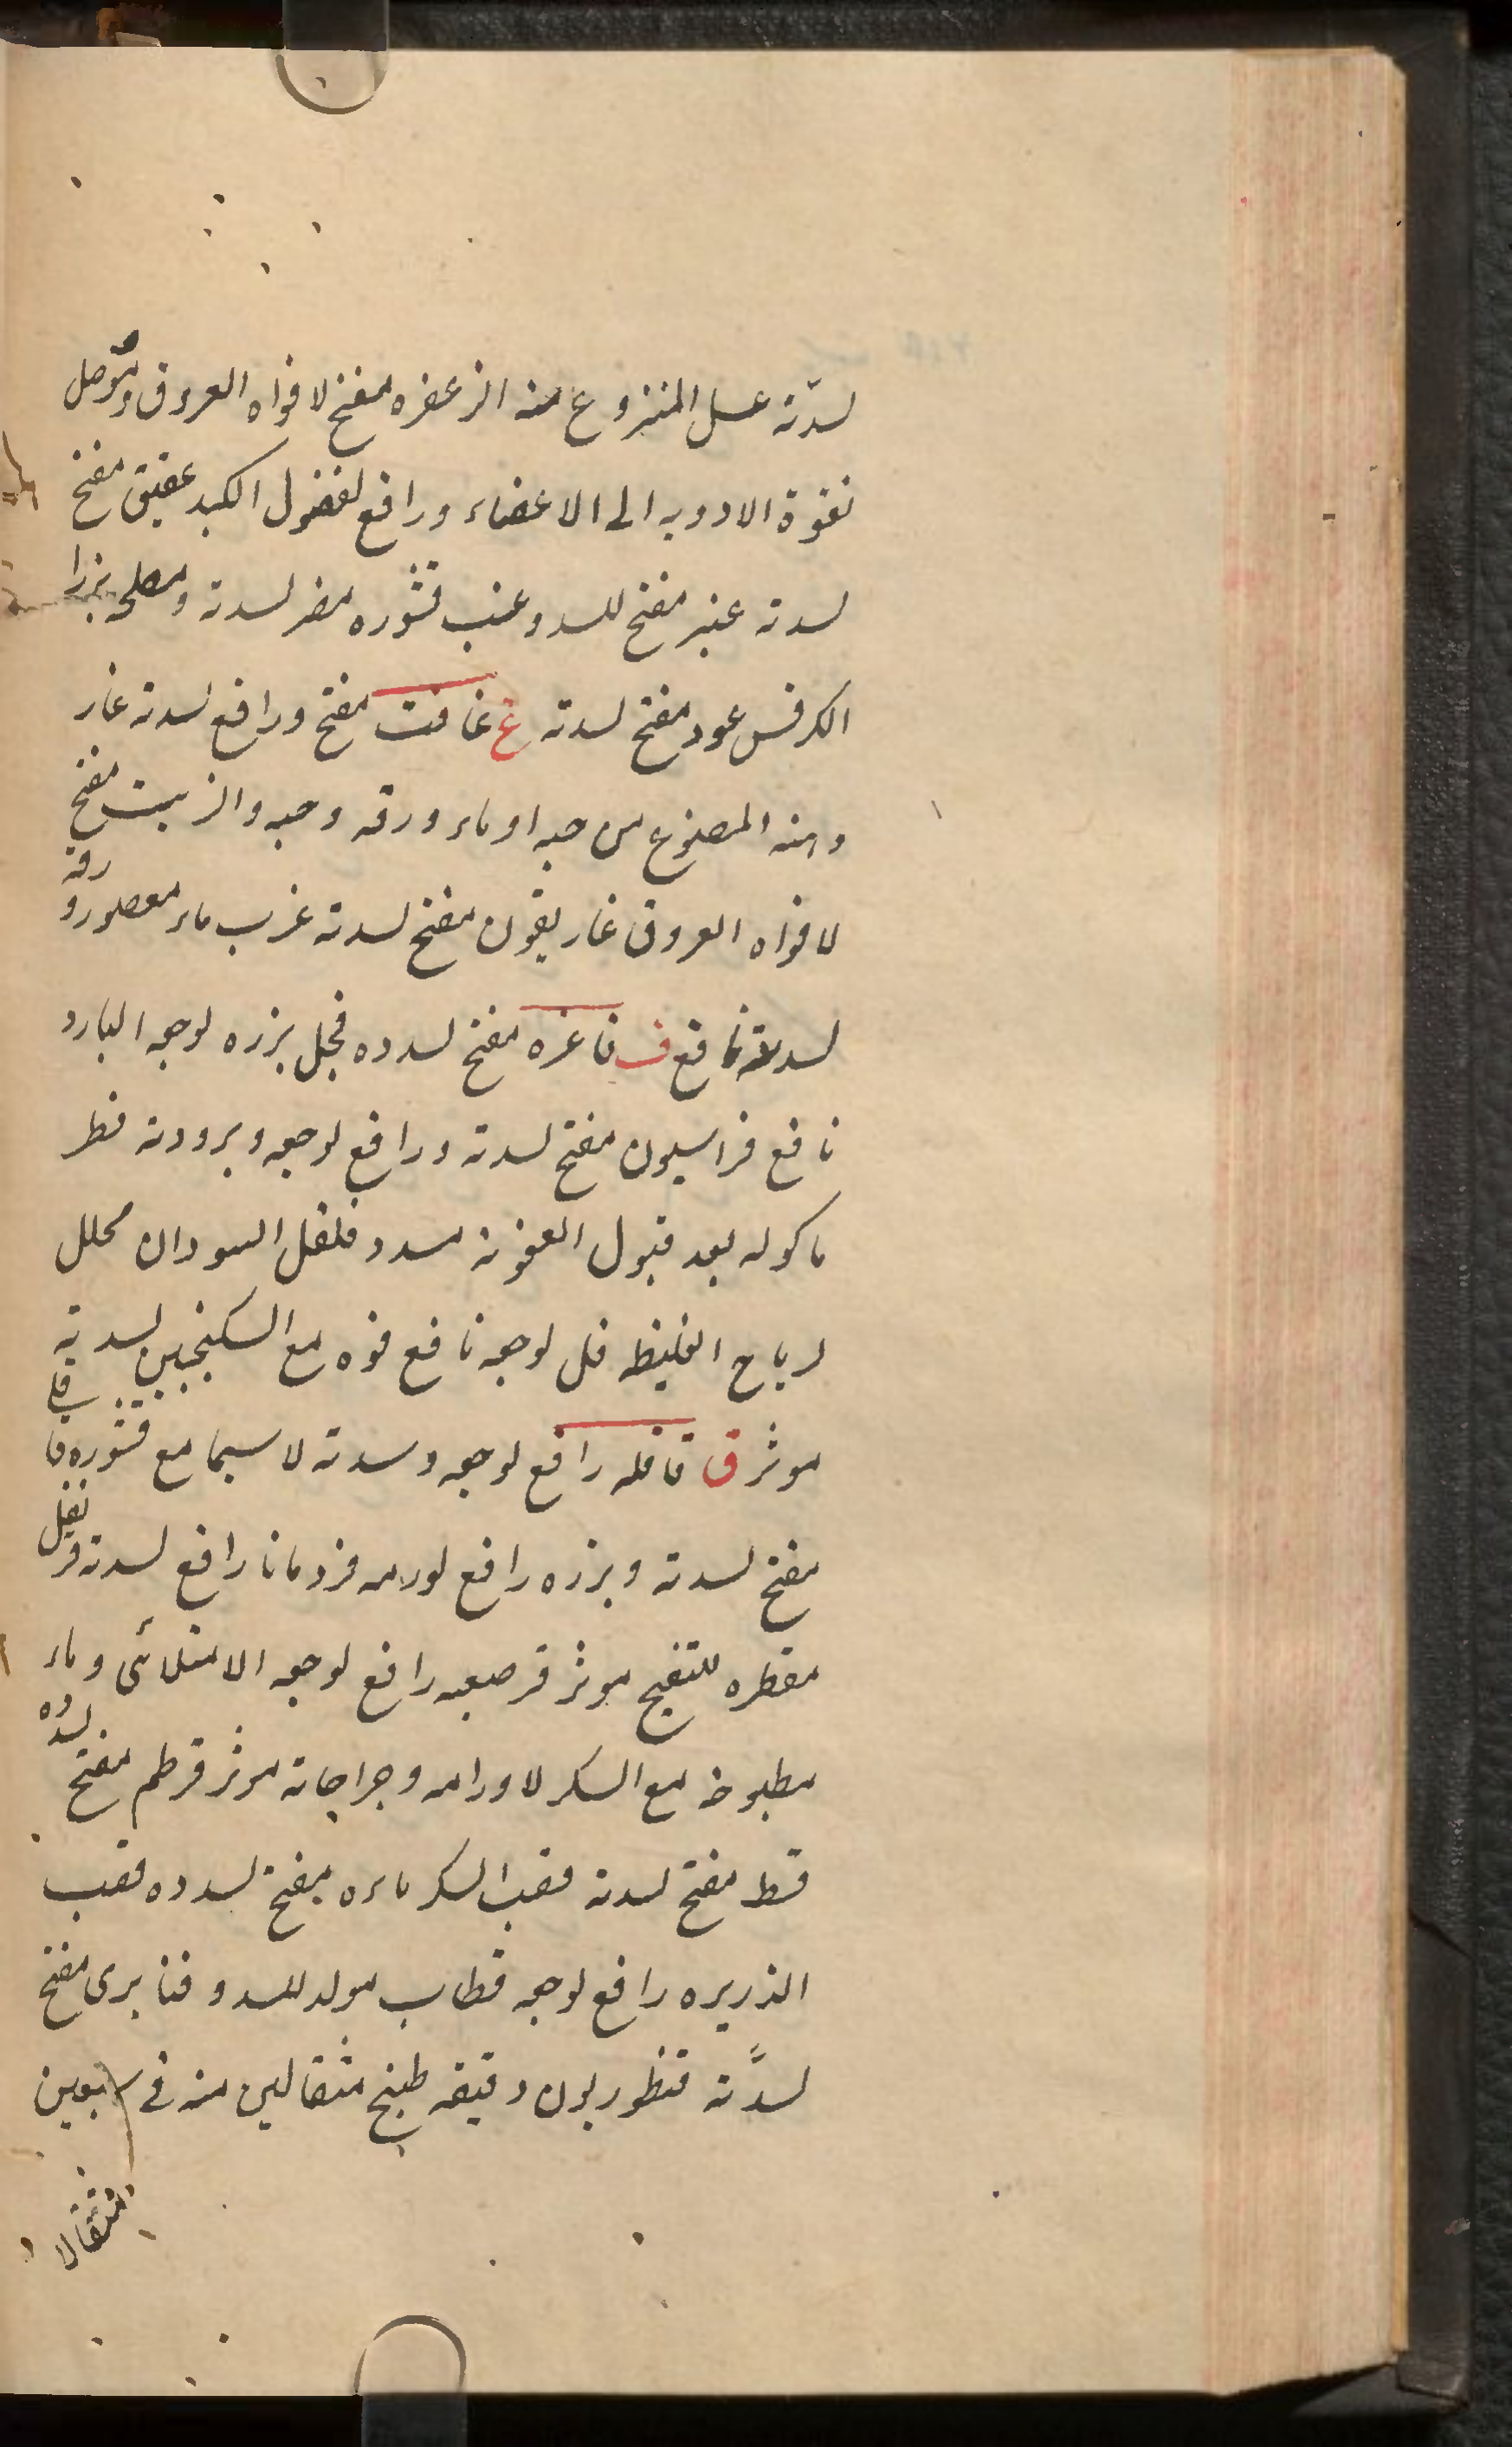 لسدّته عسل المنزوع منه الزعفره مفتح لافواه العروق وموصل
نقوة الادويه الى الاعضاء ورافع لفضول الكبد عقيق مفتح
لسدته عنبر مفتح للسدد عنب قشوره مضر لسدته ومصلحه بزرا
الكرفس عود مفتح لسدته غ غافت مفتح ورافع لسدته غار
دهنه المصنوع من حبه او ماء ورقه وحبه والزيت مفتح
لافواه العروق غاريقون مفتح لسدته غرب ماء معصور ورقه
لسدته نافع ف فاغره مفتح لسدده فجل بزره لوجعه البارد
نافع فراسيون مفتح لسدته ورافع لوجعه وبرودته فطر
ماكوله بعد قبول العفونة مسدد فلفل السودان محلل
لرياح الغليظه فل لوجعه نافع فوه مع السكنجبين لسدته
موثر ق قاقله رافع لوجعه وسدته لاسيما مع قشوره قاقلى
مفتح لسدته وبزره رافع لورمه قردمانا رافع لسدته قرنفل
مقطره للتفتيح موثر قرصعنه رافع لوجعه الامتلائى وماء
مطبوخه مع السكر لاورامه وجراحاته موثر قرطم مفتح لسدده
قسط مفتح لسدته قصب السكر ماءه مفتح لسدده قصب
الذريره رافع لوجعه قطاب مولد للسدد قنابرى مفتح
لسدّته قنطوريون دقيقه طبيخ مثقالين منه فى سبعين
مثقالا